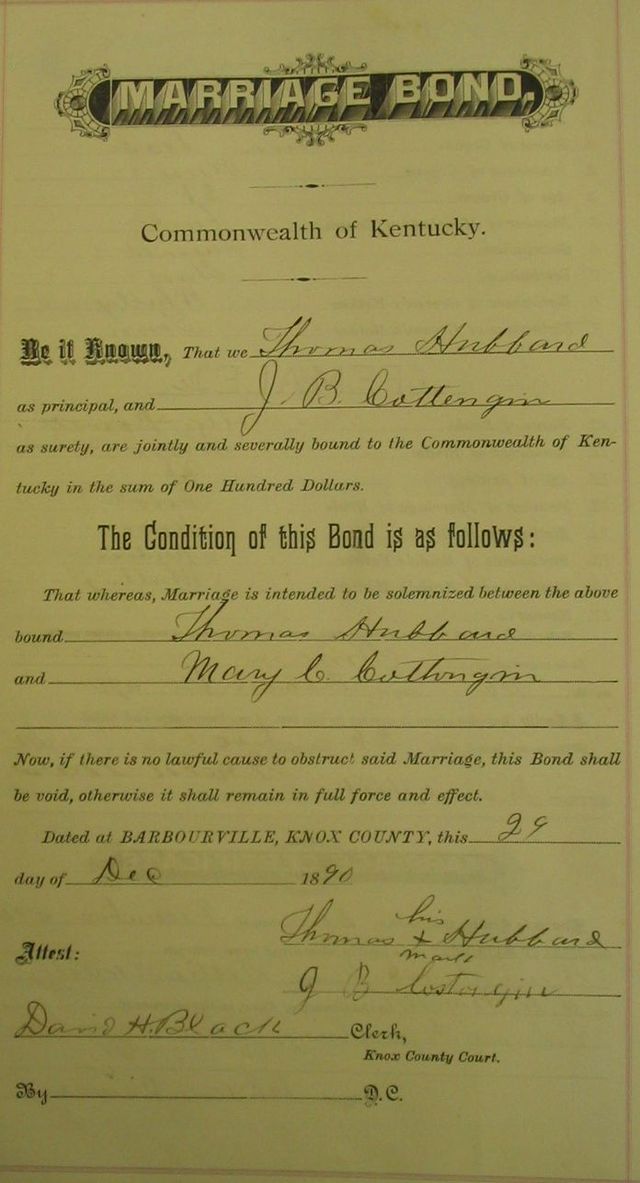 MARRIAGE BOND.
Commonwealth of Kentucky.
Be it Known, That we Thomas Hubbard
as principal, and J. B. Cottengin
as surety, are jointly and severally bound to the Commonwealth of Ken-
tucky in the sum of One Hundred Dollars.
The Condition of this Bond is as follows:
That whereas, Marriage is intended to be solemnized between the above
bound Thomas Hubbard
and Mary C. Cottongin
Now, if there is no lawful cause to obstruct said Marriage, this Bond shall
be void, otherwise it shall remain in full force and effect.
Dated at BARBOURVILLE, KNOX COUNTY, this 29
day of Dec 1890
his
Thomas + Hubbard
mark
Attest:
J B Costongin
David H. Black Clerk,
Knox County Court.
By D.C.